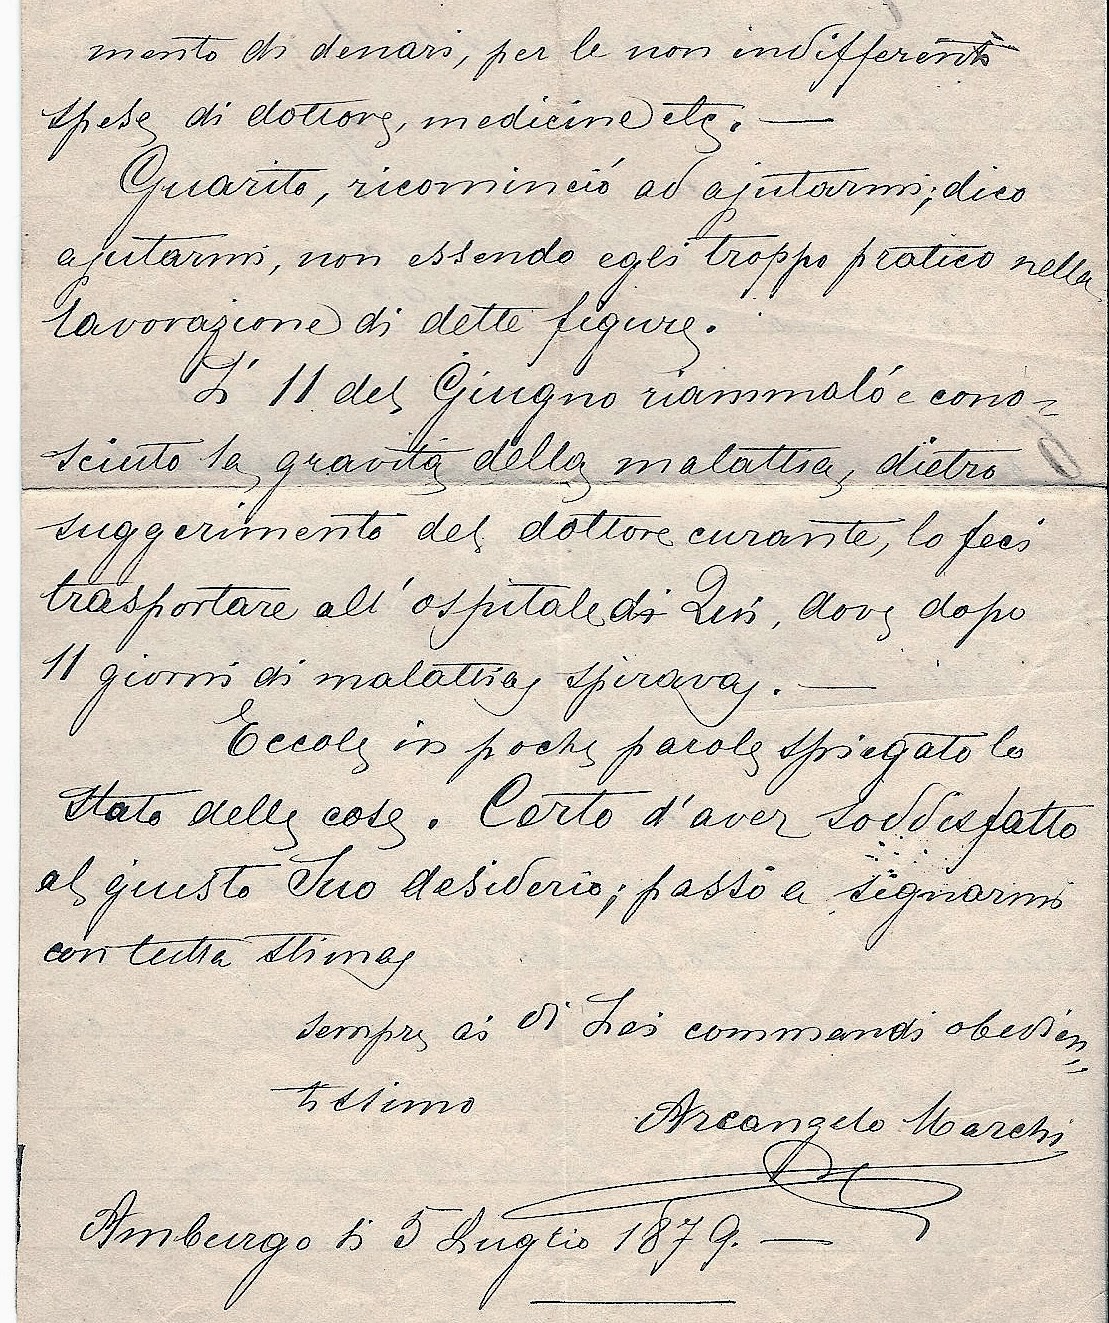 mento di denari, per le non indifferenti
spese di dottore, medicine etc. —
Guarito, ricominció ad ajutarmi; dico
ajutarmi, non essendo egli troppo pratico nella
lavorazione di dette figure.
L' 11 del Giugno riammaló e cono-
sciuto la gravitá della malattia, dietro
suggerimento del dottore curante, lo feci
trasportare all' ospitale di Qui, dove dopo
11 giorni di malattia spirava. —
Eccole in poche parole spiegato lo
stato delle cose. Certo d'aver soddisfatto
al giusto Suo desiderio; passo a segnarmi
con tutta stima
sempre ai di Lei commandi obedien-
tissimo
Arcangelo Marchi
Amburgo li 5 Luglio 1879. —